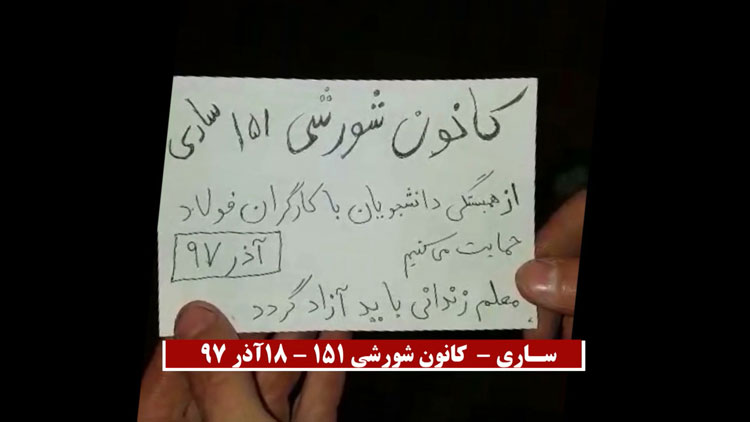 کانون شورشی ۱۵۱ ساری
از همبستگی دانشجویان با کارگران فولاد
حمایت می‌کنیم
آذر ۹۷
معلم زندانی باید آزاد گردد.
ساری – کانون شورشی ۱۵۱ – ۱۸آذر ۹۷